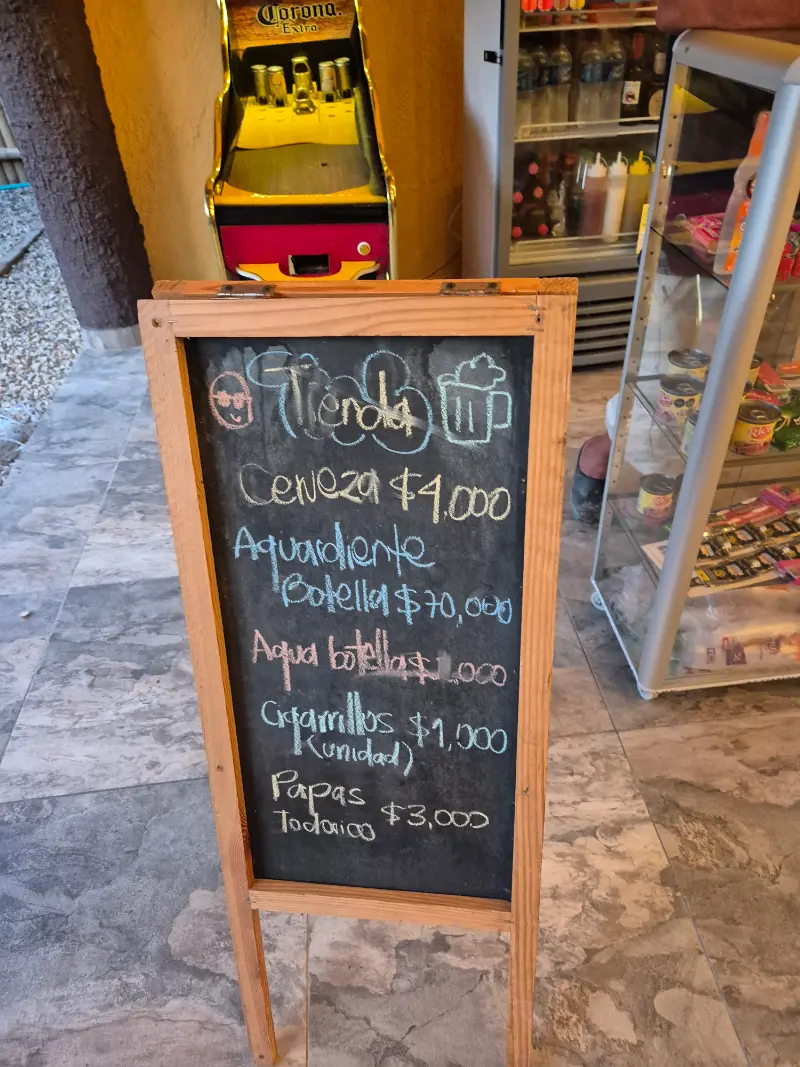 Corona.
Extra
Tienda
Cerveza $4,000
Aguardiente
Botella $70,000
Agua botella $ ,000
Cigarrillos $1,000
(unidad)
Papas
Todorico $3,000